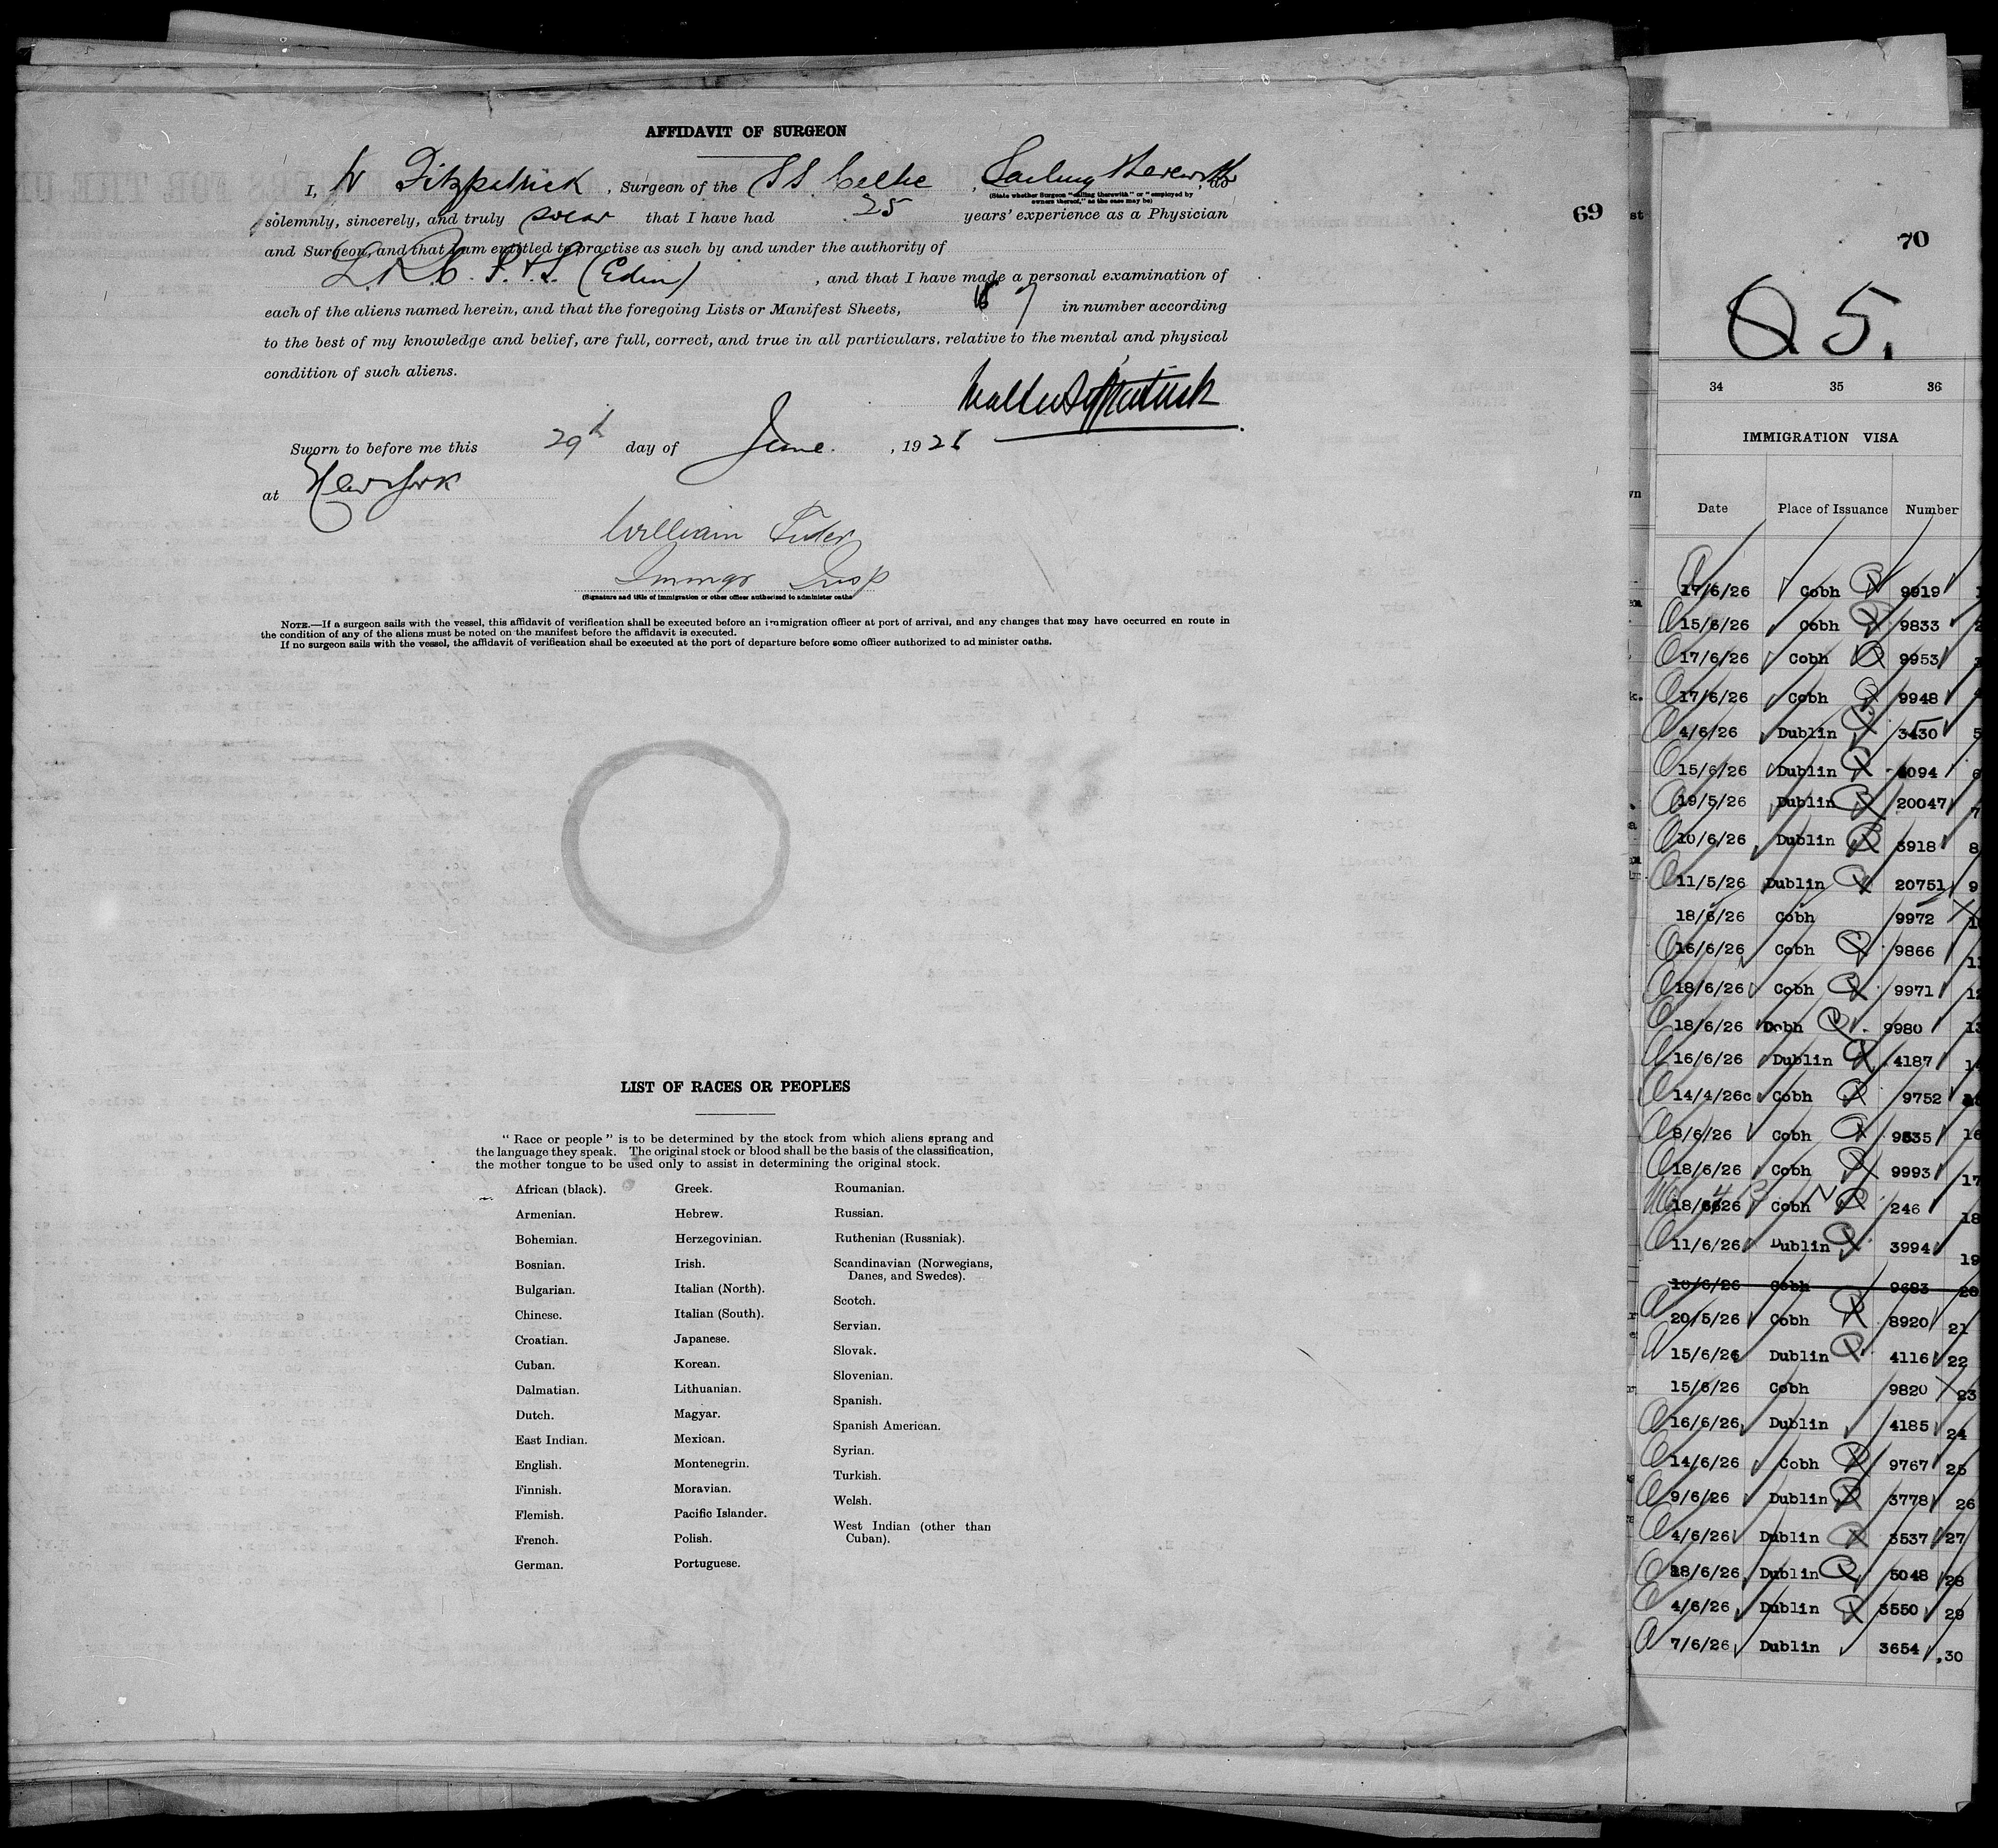 AFFIDAVIT OF SURGEON
I, W Fitzpatrick, Surgeon of the SS Celtic, Sailing therewith, do
(State whether Surgeon "sailing therewith" or "employed by
owners thereof," as the case may be)
solemnly, sincerely, and truly swear that I have had 25 years' experience as a Physician
and Surgeon, and that I am entitled to practise as such by and under the authority of
L.R.C.P.&S. (Edin), and that I have made a personal examination of
each of the aliens named herein, and that the foregoing Lists or Manifest Sheets, 7 in number according
to the best of my knowledge and belief, are full, correct, and true in all particulars, relative to the mental and physical
condition of such aliens.
Walter Fitzpatrick
Sworn to before me this 29th day of June, 1926
at New York
William
Immgr Insp
(Signature and title of immigration or other officer authorized to administer oaths
NOTE.—If a surgeon sails with the vessel, this affidavit of verification shall be executed before an immigration officer at port of arrival, and any changes that may have occurred en route in
the condition of any of the aliens must be noted on the manifest before the affidavit is executed.
If no surgeon sails with the vessel, the affidavit of verification shall be executed at the port of departure before some officer authorized to administer oaths.
69
LIST OF RACES OR PEOPLES
"Race or people" is to be determined by the stock from which aliens sprang and
the language they speak. The original stock or blood shall be the basis of the classification,
the mother tongue to be used only to assist in determining the original stock.
African (black).
Armenian.
Bohemian.
Bosnian.
Bulgarian.
Chinese.
Croatian.
Cuban.
Dalmatian.
Dutch.
East Indian.
English.
Finnish.
Flemish.
French.
German.
Greek.
Hebrew.
Herzegovinian.
Irish.
Italian (North).
Italian (South).
Japanese.
Korean.
Lithuanian.
Magyar.
Mexican.
Montenegrin.
Moravian.
Pacific Islander.
Polish.
Portuguese.
Roumanian.
Russian.
Ruthenian (Russniak).
Scandinavian (Norwegians,
Danes, and Swedes).
Scotch.
Servian.
Slovak.
Slovenian.
Spanish.
Spanish American.
Syrian.
Turkish.
Welsh.
West Indian (other than
Cuban).
70
Q 5.
34 35 36
IMMIGRATION VISA
Date Place of Issuance Number
17/6/26 Cobh 9919
15/6/26 Cobh 9833
17/6/26 Cobh 9953
17/6/26 Cobh 9948
4/6/26 Dublin 3430 5
15/6/26 Dublin 4094 6
19/5/26 Dublin 20047 7
10/6/26 Dublin 3918 8
11/5/26 Dublin 20751 9
18/6/26 Cobh 9972
16/6/26 Cobh 9866
18/6/26 Cobh 9971 12
18/6/26 Cobh 9980 13
16/6/26 Dublin 4187
14/4/26 Cobh 9752
8/6/26 Cobh 9535 16
18/6/26 Cobh 9993 17
Cobh 246 18
11/6/26 Dublin 3994 19
10/6/26 Cobh 9683 20
20/5/26 Cobh 8920 21
15/6/26 Dublin 4116 22
15/6/26 Cobh 9820 23
16/6/26 Dublin 4185 24
14/6/26 Cobh 9767 25
9/6/26 Dublin 3778 26
4/6/26 Dublin 3537 27
18/6/26 Dublin 5048 28
4/6/26 Dublin 3550 29
7/6/26 Dublin 3654 30